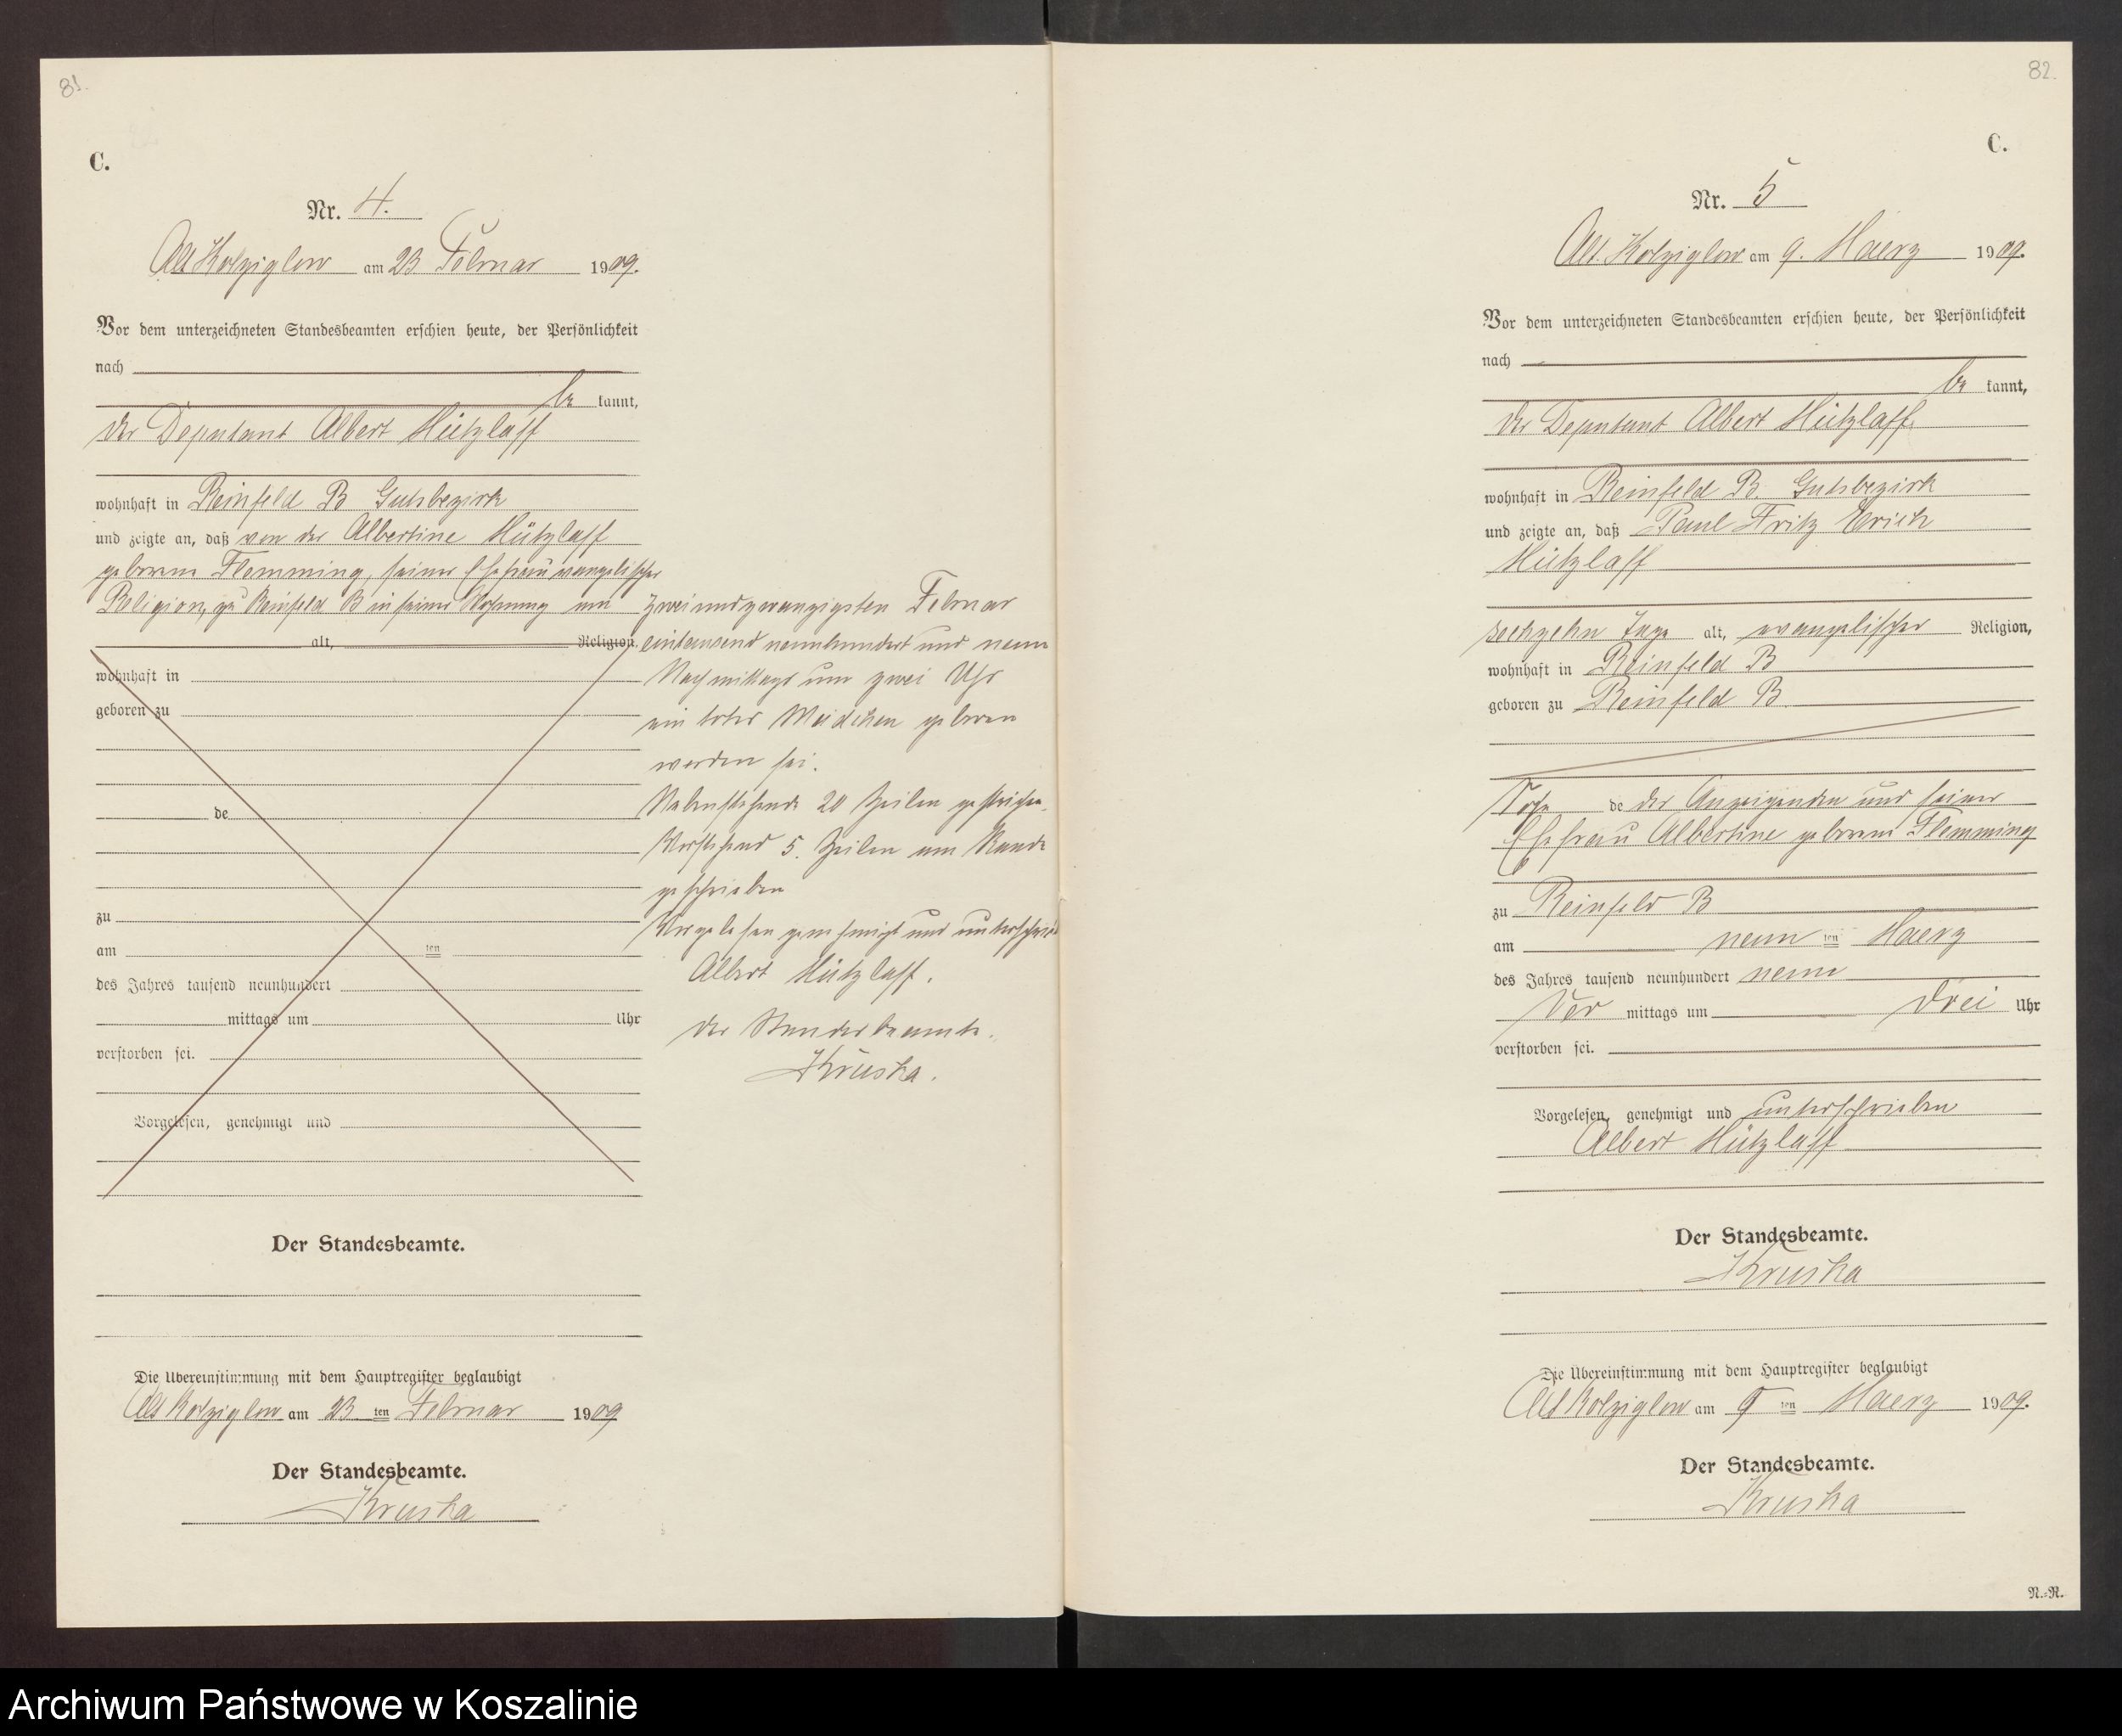 81.
C.
Nr. 4.
Alt Kolziglow am 23 Februar 1909.
Vor dem unterzeichneten Standesbeamten erschien heute, der Persönlichkeit
nach
be kannt,
der Deputant Albert Hützlaff
wohnhaft in Reinfeld B Gutsbezirk
und zeigte an, daß von der Albertine Hützlaff
geborene Flemming, seiner Ehefrau evangelischer
Religion, zu Reinfeld B in seiner Wohnung am
alt, Religion,
wohnhaft in
geboren zu
de
zu
am ten
des Jahres tausend neunhundert
mittags um Uhr
verstorben sei.
Vorgelesen, genehmigt und
zweiundzwanzigsten Februar
eintausend neunhundert und neun
Nachmittags um zwei Uhr
ein totes Mädchen geboren
worden sei.
Nebenstehende 20 Zeilen gestrichen.
Vorstehend 5. Zeilen am Rande
geschrieben
Vorgelesen genehmigt und unterschrieb
Albert Hützlaff.
Der Standesbeamte.
Kruska.
Der Standesbeamte.
Die Übereinstimmung mit dem Hauptregister beglaubigt
Alt Kolziglow am 23 ten Februar 1909
Der Standesbeamte.
Kruska
82.
C.
Nr. 5
Alt. Kolziglow am 9. Maerz 1909.
Vor dem unterzeichneten Standesbeamten erschien heute, der Persönlichkeit
nach
be kannt,
der Deputant Albert Hützlaff
wohnhaft in Reinfeld B. Gutsbezirk
und zeigte an, daß Paul Fritz Erich
Hützlaff
sechzehn Tage alt, evangelischer Religion,
wohnhaft in Reinfeld B
geboren zu Reinfeld B.
Sohn de des Anzeigenden und seiner
Ehefrau Albertine geborene Flemming
zu Reinfeld B
am neun ten Maerz
des Jahres tausend neunhundert neun
Vor mittags um drei Uhr
verstorben sei.
Vorgelesen, genehmigt und unterschrieben
Albert Hützlaff
Der Standesbeamte.
Kruska
Die Übereinstimmung mit dem Hauptregister beglaubigt
Alt Kolziglow am 9 ten Maerz 1909.
Der Standesbeamte.
Kruska
N.=N.
Archiwum Państwowe w Koszalinie